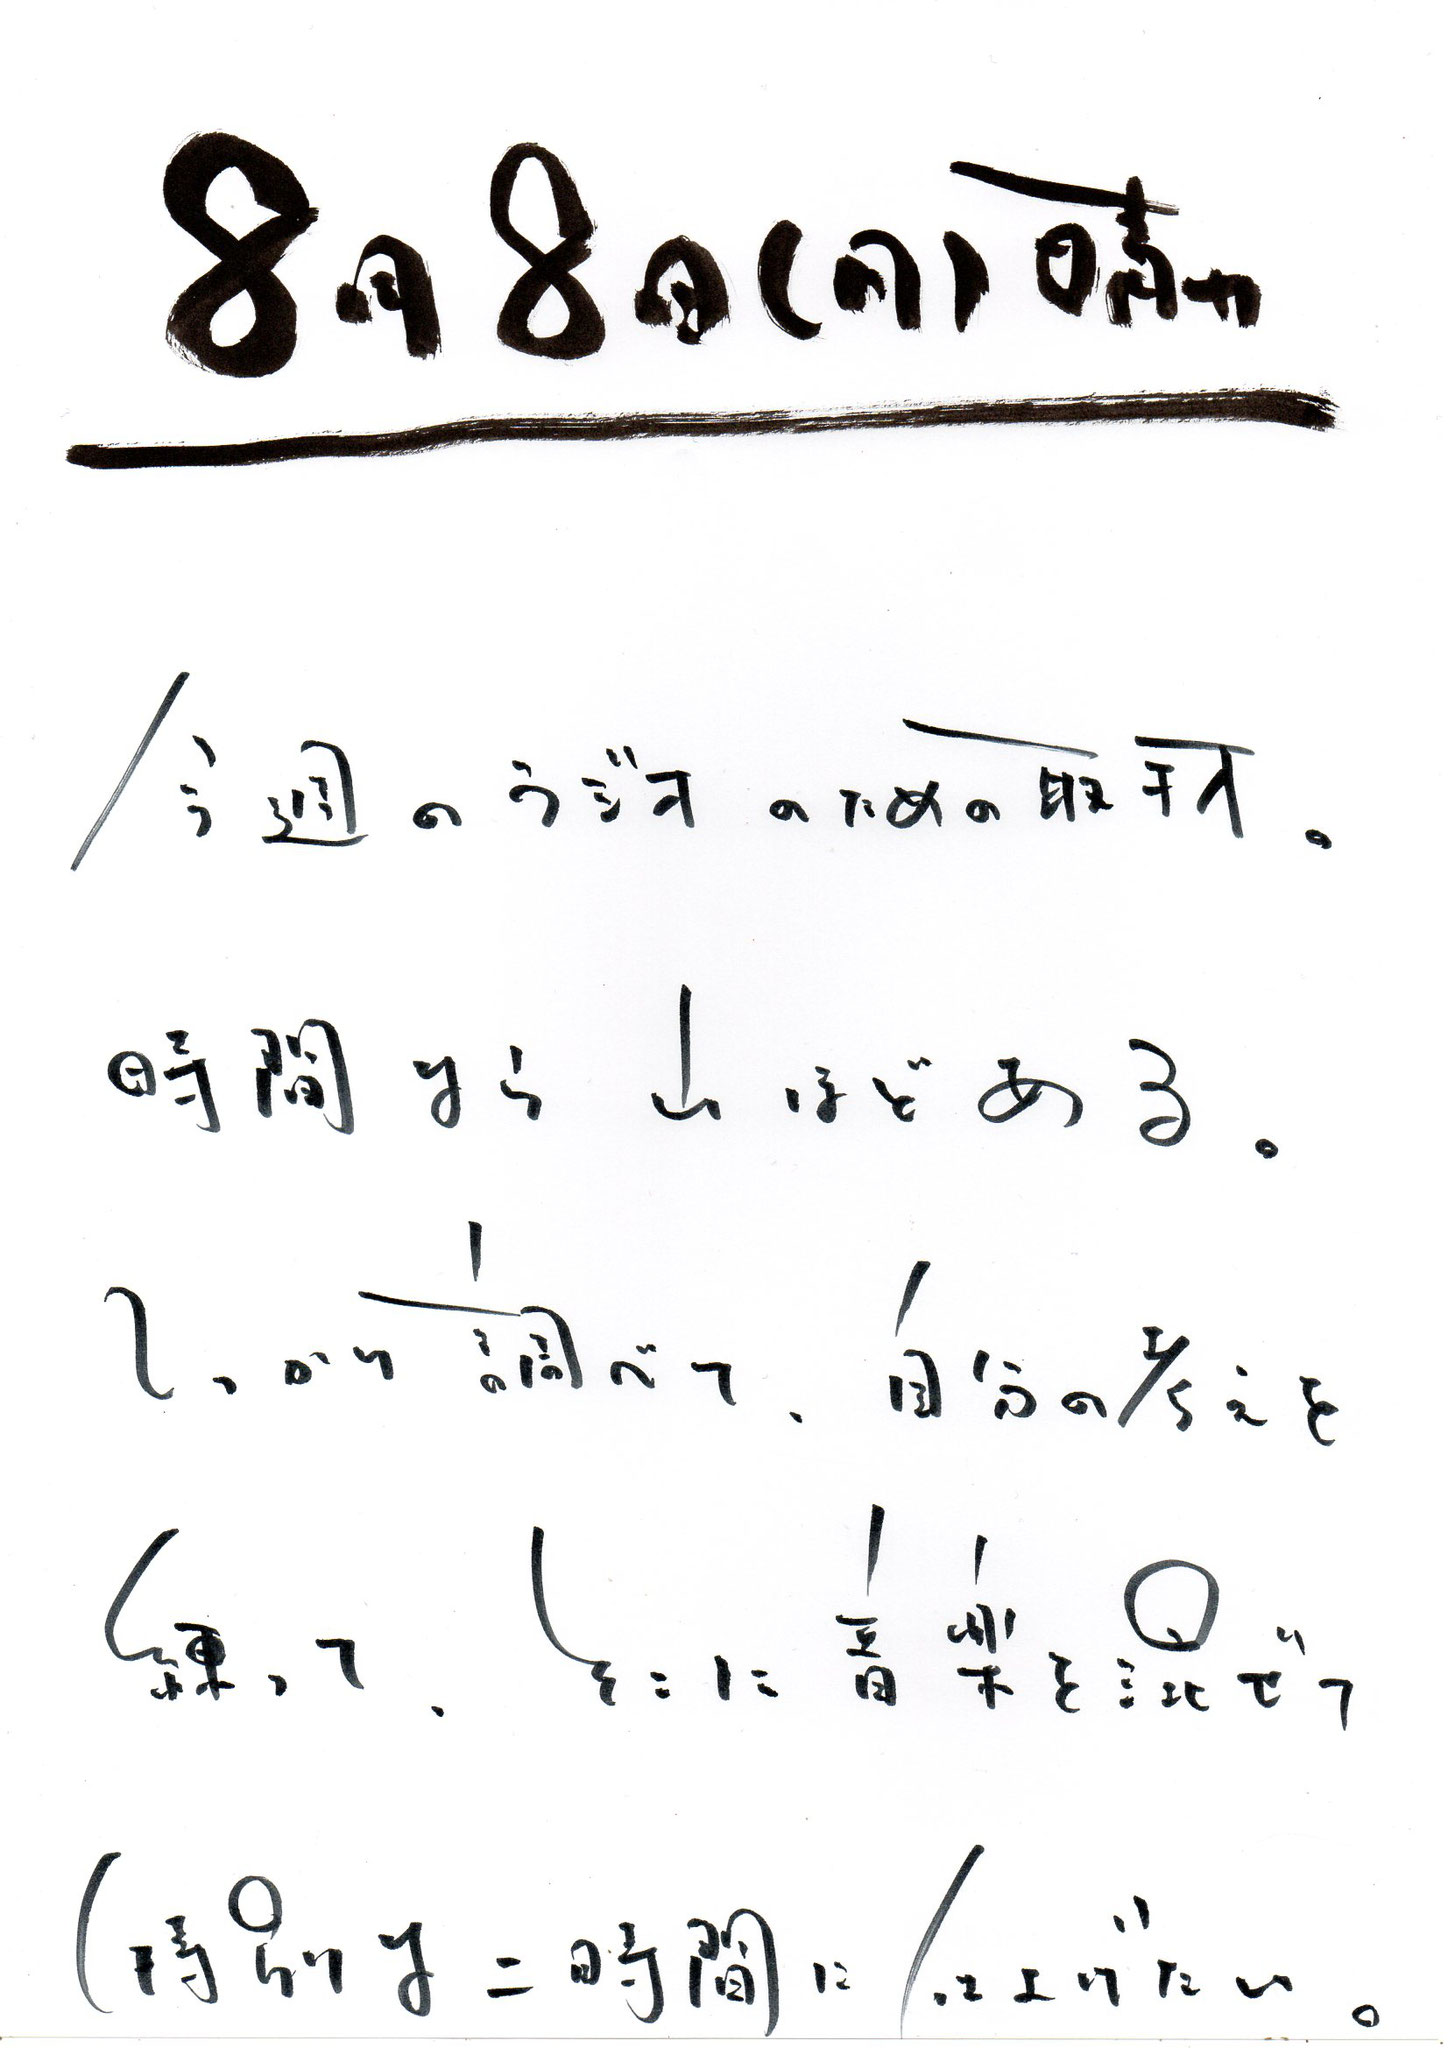 8月8日(月)晴れ
今週のラジオのための取材。
時間なら山ほどある。
しっかり調べて、自分の考えを
練って、そこに音楽を混ぜて
特別な二時間に仕上げたい。